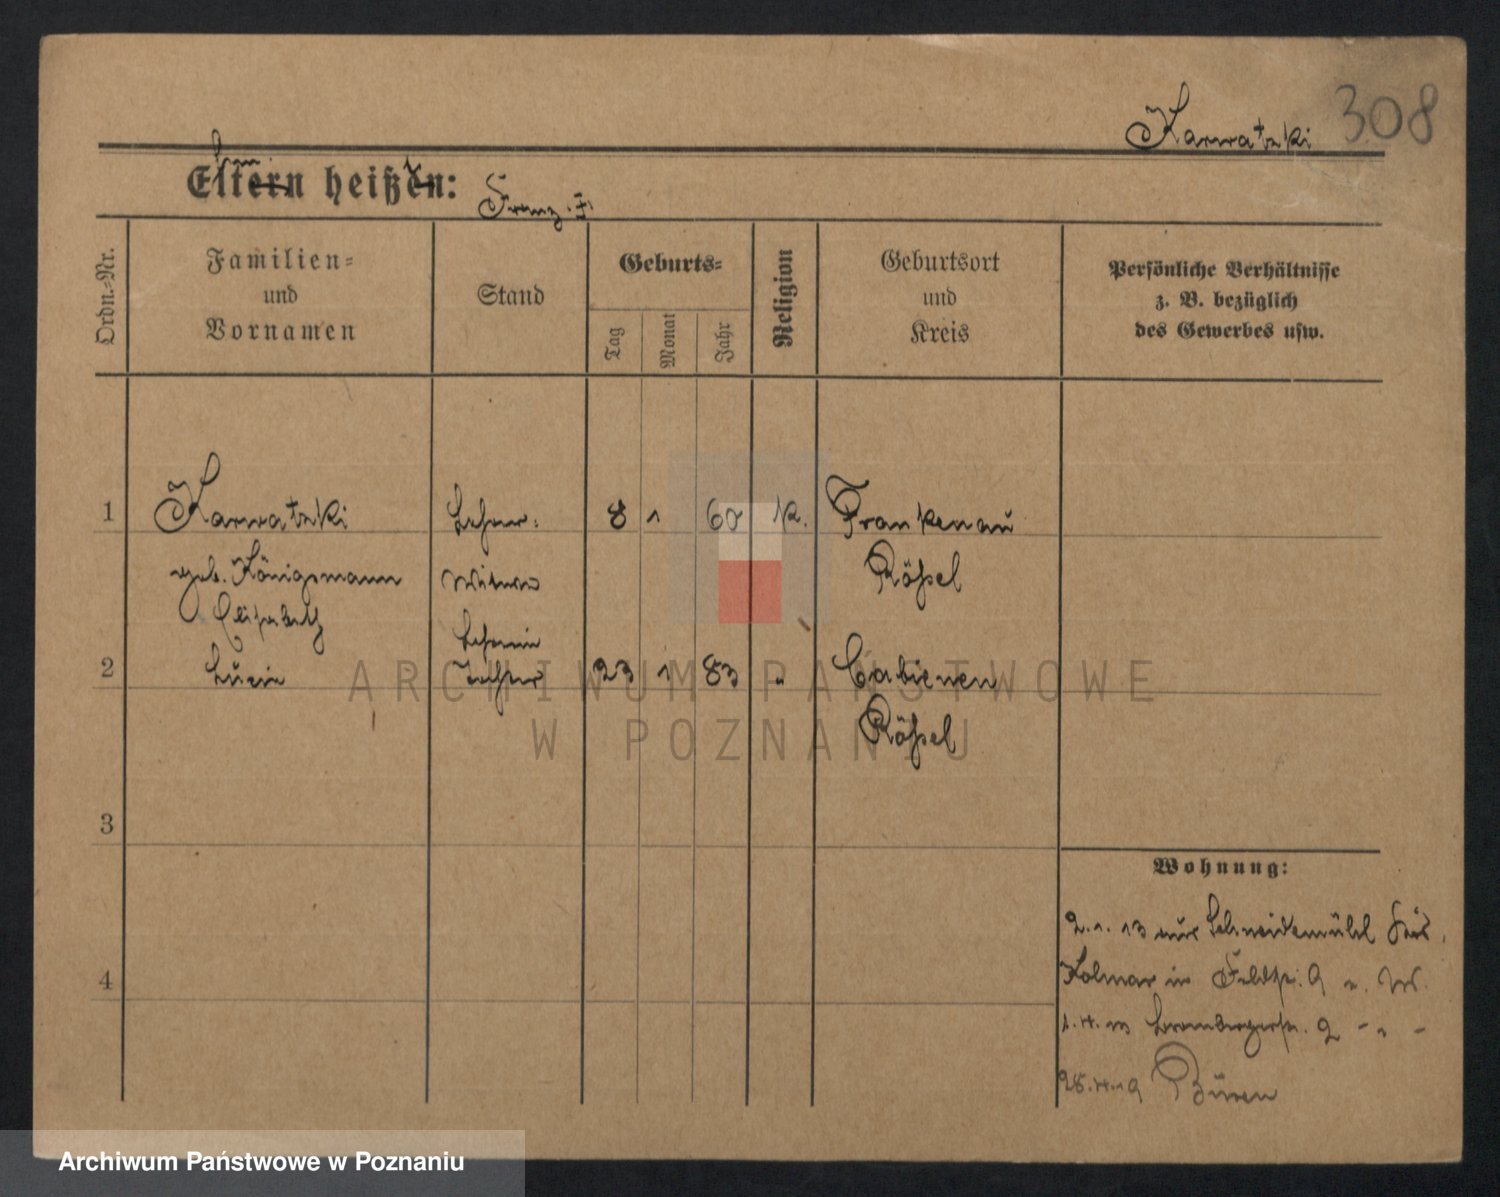 308
Karratzki
Eltern heißen:
Franz. †.
Ordn.-Nr.
Familien-
und
Vornamen
Stand
Geburts-
Tag
Monat
Jahr
Religion
Geburtsort
und
Kreis
Persönliche Verhältnisse
z. B. bezüglich
des Gewerbes usw.
1 Karratzki Lehrer- 8 1 60 k. Frankenau
geb. Königsmann Witwe Rößel
Elisabeth
Lehrerin
2 Luzie Tochter 23 1 83 " Cabienen
Rößel
ARCHIWUM PAŃSTWOWE
W POZNANIU
3
Wohnung:
2.1.13 aus Schneidemühl Krs.
4
Kolmar in Feldstr. 9
1.4.13 Brombergerstr. 2 - " -
28.4.19 Büren
Archiwum Państwowe w Poznaniu